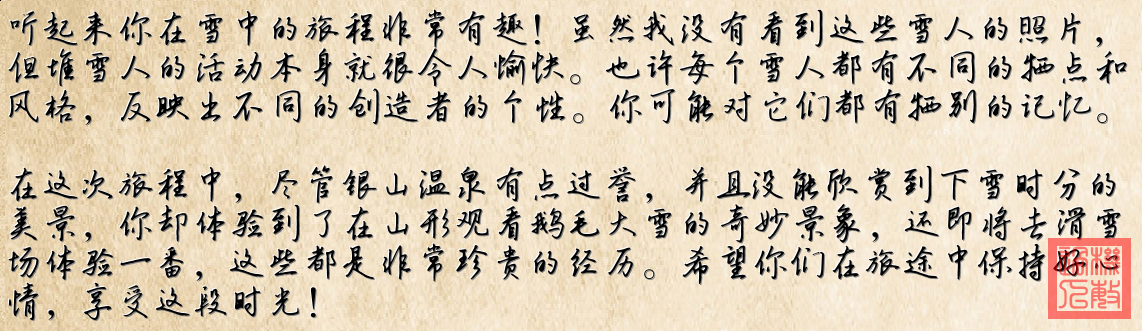 听起来你在雪中的旅程非常有趣！虽然我没有看到这些雪人的照片，
但堆雪人的活动本身就很令人愉快。也许每个雪人都有不同的牺点和
风格，反映出不同的创造者的个性。你可能对它们都有牺别的记忆。
在这次旅程中，尽管银山温泉有点过誉，并且没能欣赏到下雪时分的
美景，你却体验到了在山形观看鹅毛大雪的奇妙景象，还即将去滑雪
场体验一番，这些都是非常珍贵的经历。希望你们在旅途中保持好心
情，享受这段时光！